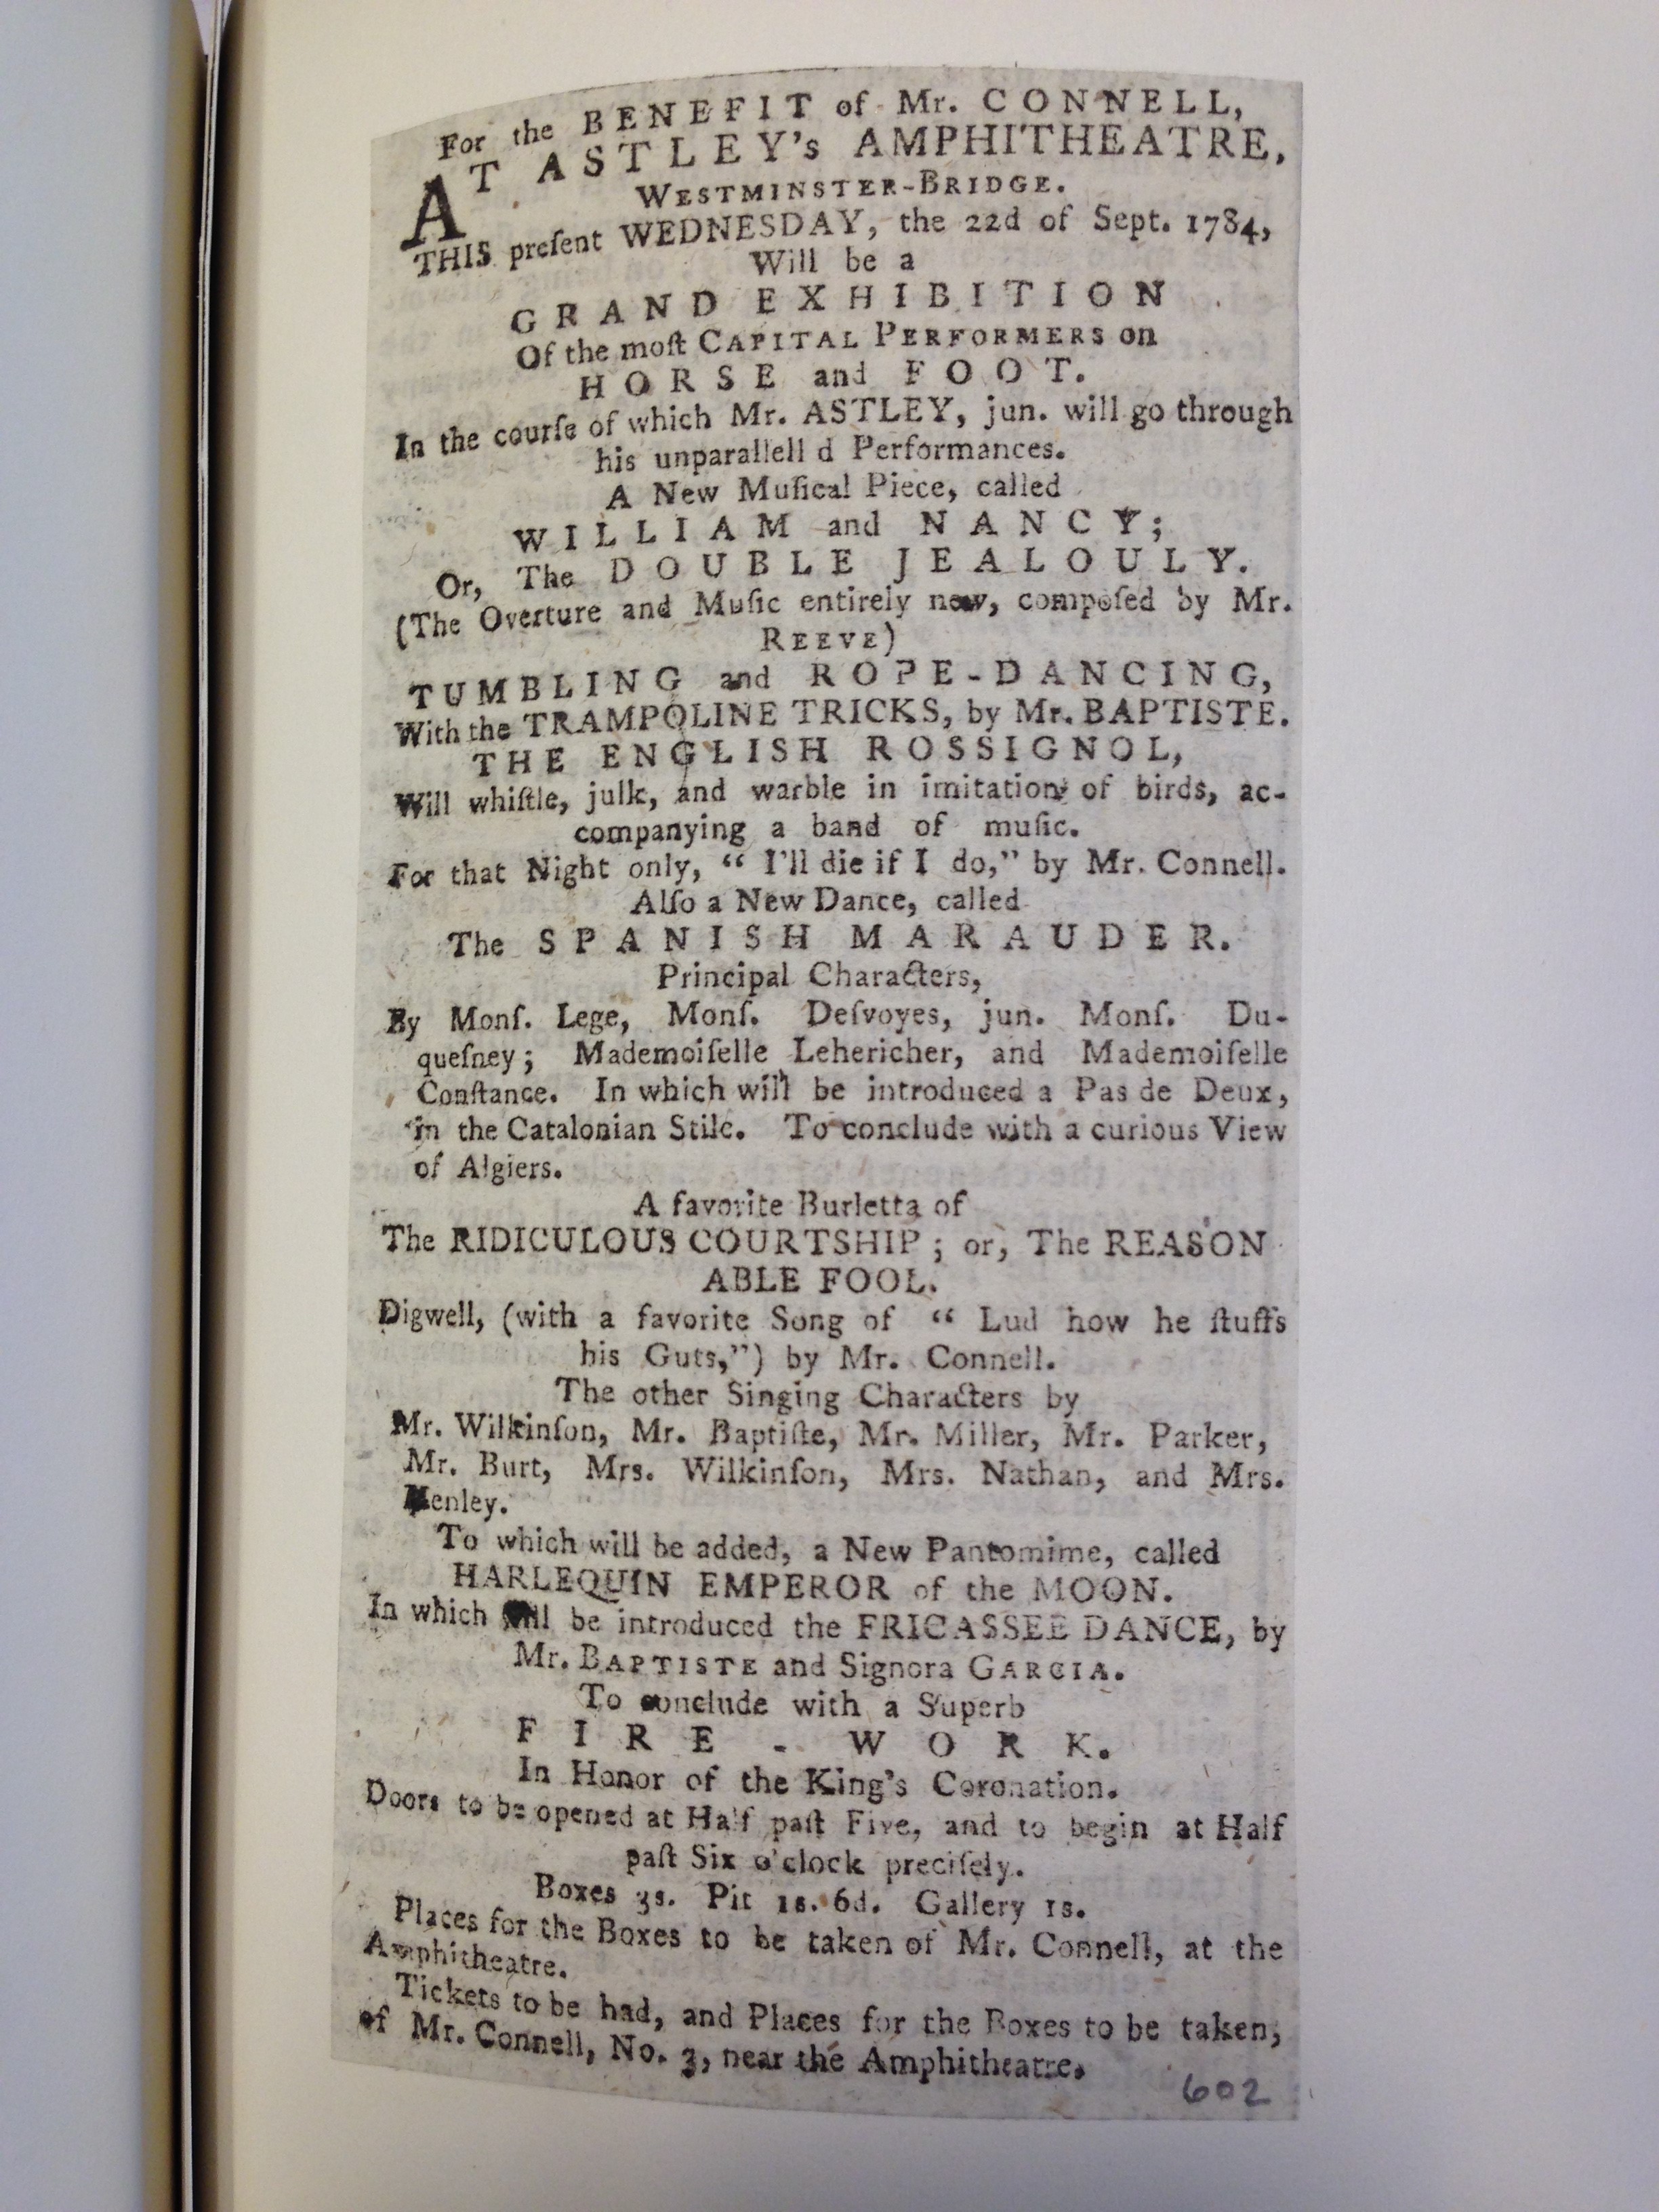 For the BENEFIT of Mr. CONNELL,
AT ASTLEY's AMPHITHEATRE,
WESTMINSTER-BRIDGE.
THIS preſent WEDNESDAY, the 22d of Sept. 1784,
Will be a
GRAND EXHIBITION
Of the moſt CAPITAL PERFORMERS on
HORSE and FOOT.
In the courſe of which Mr. ASTLEY, jun. will go through
his unparallell d Performances.
A New Muſical Piece, called
WILLIAM and NANCY;
Or, The DOUBLE JEALOULY.
(The Overture and Muſic entirely new, compoſed by Mr.
REEVE)
TUMBLING and ROPE-DANCING,
With the TRAMPOLINE TRICKS, by Mr. BAPTISTE.
THE ENGLISH ROSSIGNOL,
Will whiſtle, julk, and warble in imitation of birds, ac-
companying a band of muſic.
For that Night only, “ I'll die if I do,” by Mr. Connell.
Alſo a New Dance, called
The SPANISH MARAUDER.
Principal Characters,
By Monſ. Lege, Monſ. Deſvoyes, jun. Monſ. Du-
queſney; Mademoiſelle Lehericher, and Mademoiſelle
Conſtance. In which will be introduced a Pas de Deux,
in the Catalonian Stile. To conclude with a curious View
of Algiers.
A favorite Burletta of
The RIDICULOUS COURTSHIP; or, The REASON
ABLE FOOL.
Digwell, (with a favorite Song of “ Lud how he ſtuffs
his Guts,”) by Mr. Connell.
The other Singing Characters by
Mr. Wilkinſon, Mr. Baptiſte, Mr. Miller, Mr. Parker,
Mr. Burt, Mrs. Wilkinſon, Mrs. Nathan, and Mrs.
Henley.
To which will be added, a New Pantomime, called
HARLEQUIN EMPEROR of the MOON.
In which will be introduced the FRICASSEE DANCE, by
Mr. BAPTISTE and Signora GARCIA.
To conclude with a Superb
FIRE-WORK.
In Honor of the King's Coronation.
Doors to be opened at Half paſt Five, and to begin at Half
paſt Six o'clock preciſely.
Boxes 3s. Pit 1s. 6d. Gallery 1s.
Places for the Boxes to be taken of Mr. Connell, at the
Amphitheatre.
Tickets to be had, and Places for the Boxes to be taken,
of Mr. Connell, No. 3, near the Amphitheatre.
602